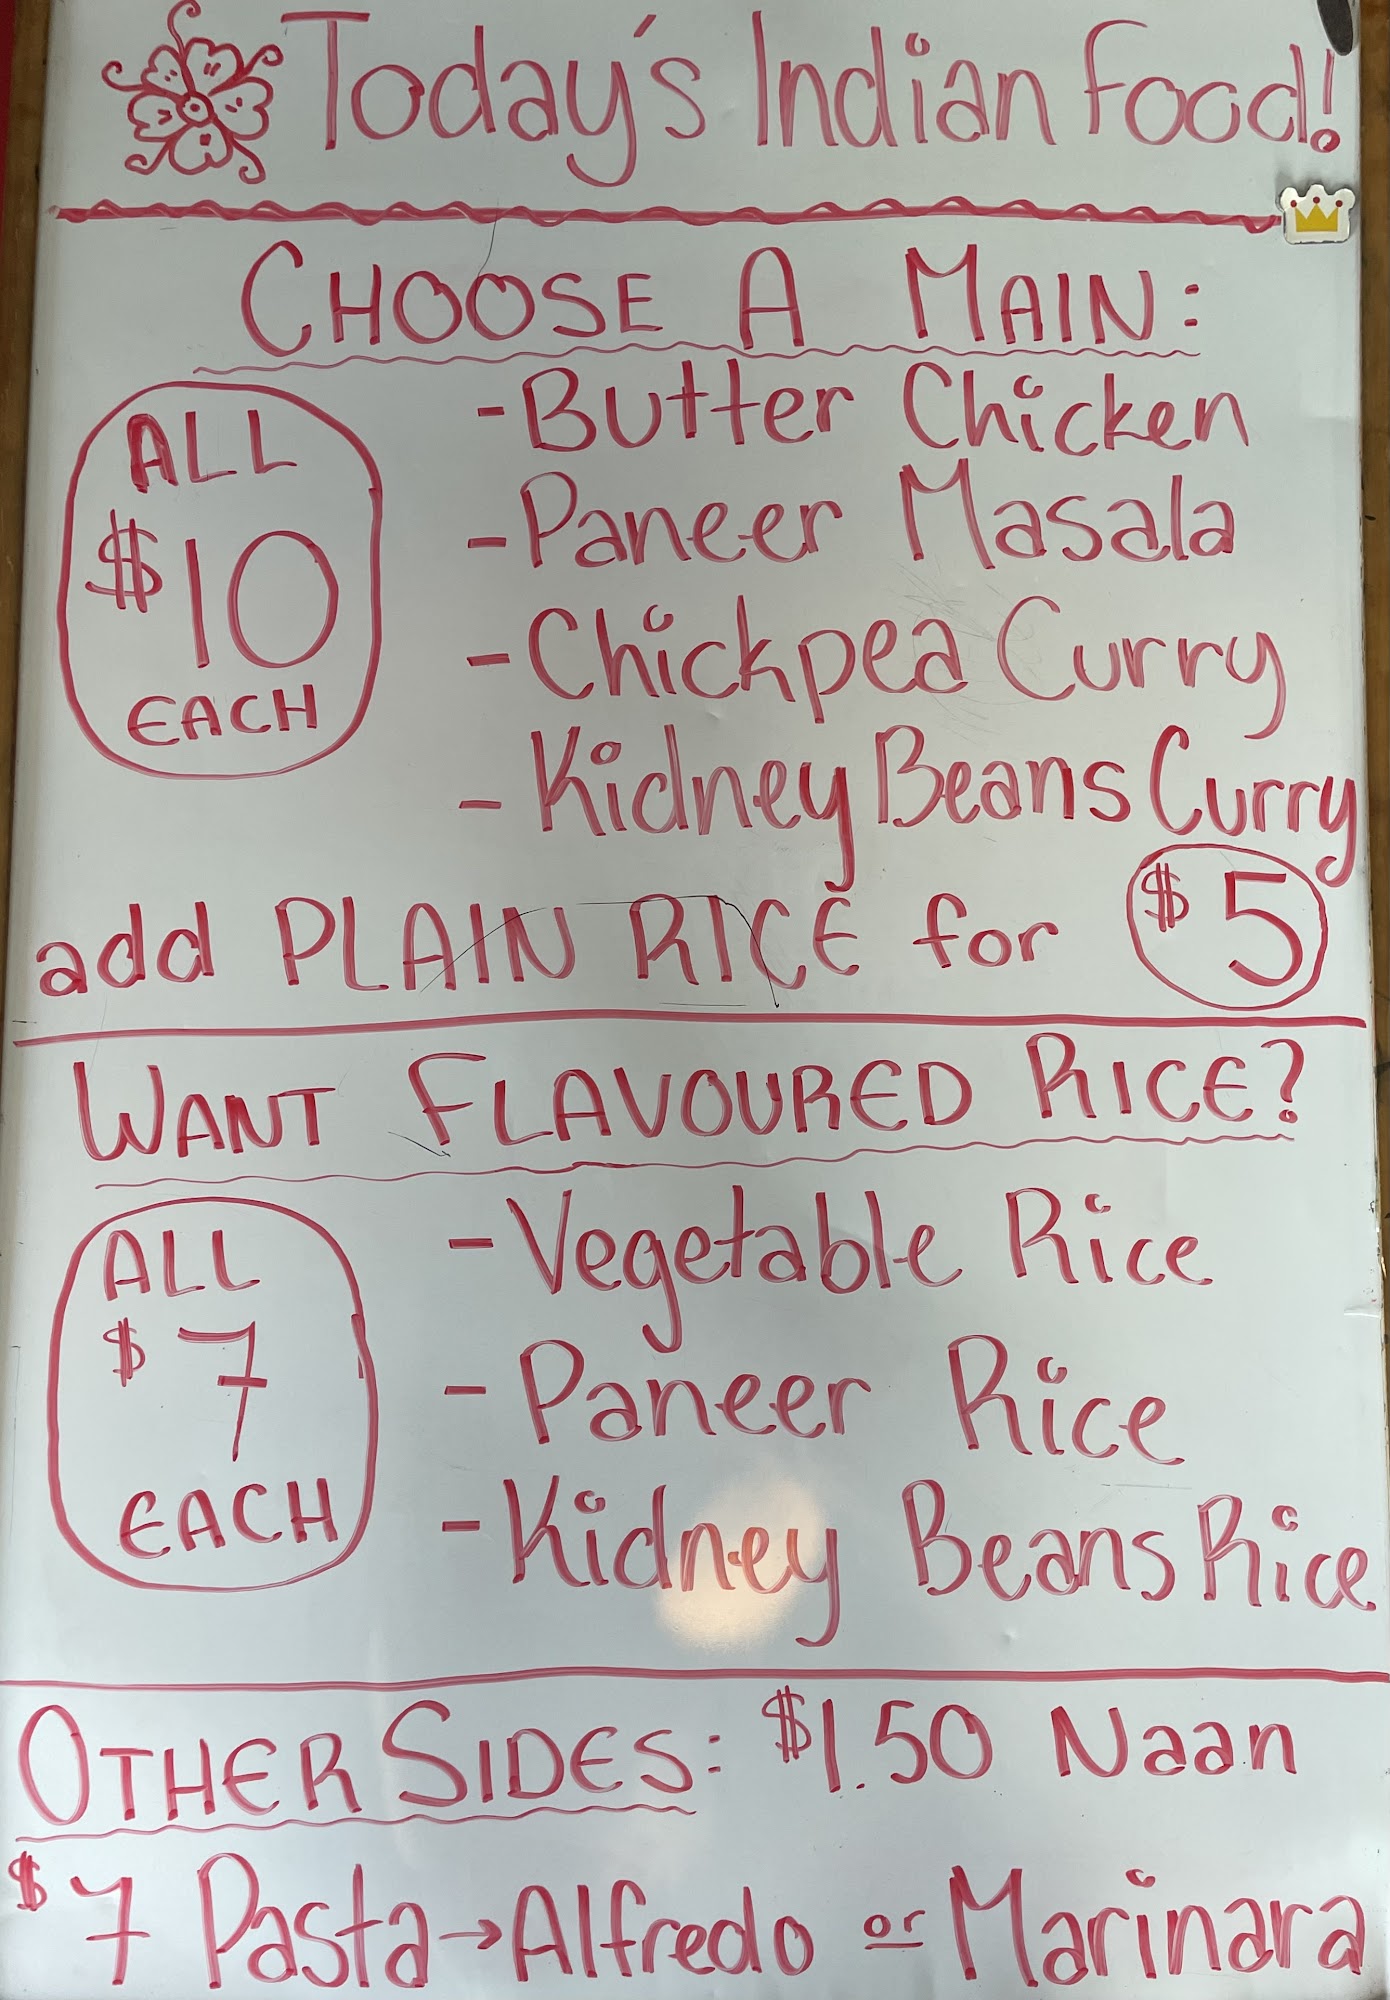 Today's Indian Food!
CHOOSE A MAIN:
ALL
$10
EACH
- Butter Chicken
- Paneer Masala
- Chickpea Curry
- Kidney Beans Curry
add PLAIN RICE for $5
WANT FLAVOURED RICE?
ALL
$7
EACH
- Vegetable Rice
- Paneer Rice
- Kidney Beans Rice
OTHER SIDES: $1.50 Naan
$7 Pasta → Alfredo or Marinara